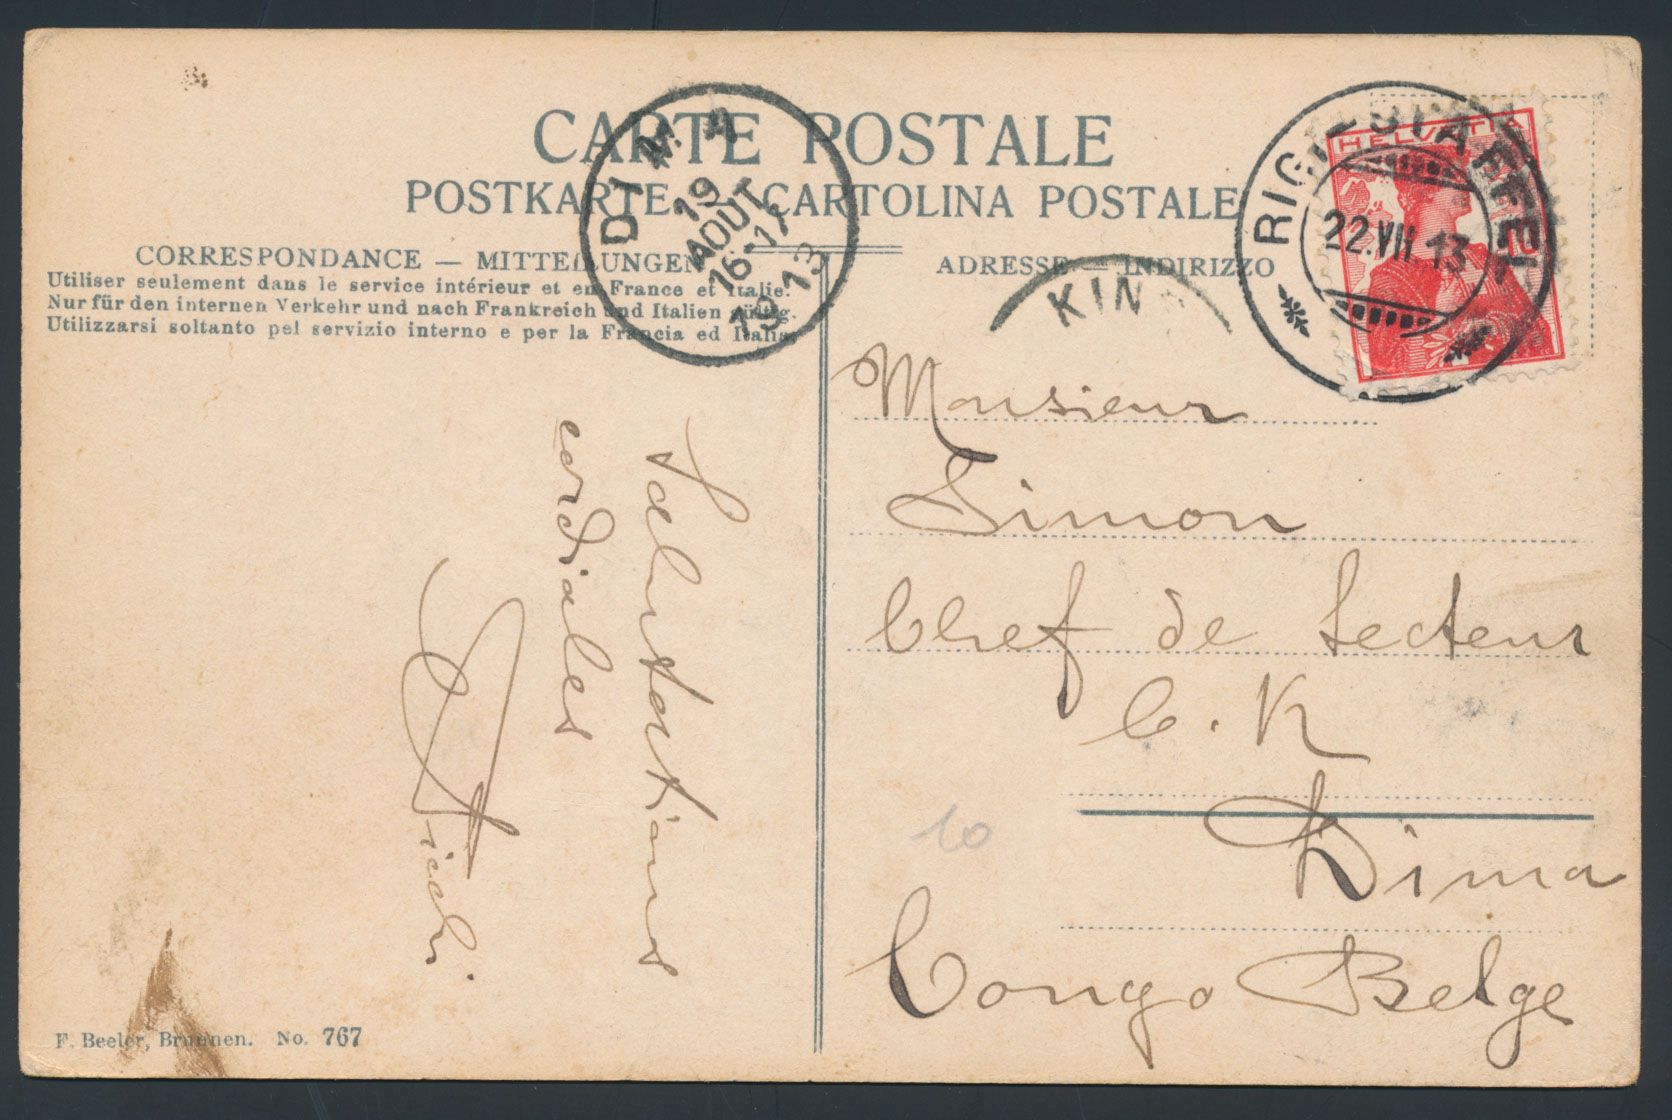 CARTE POSTALE
POSTKARTE CARTOLINA POSTALE
CORRESPONDANCE — MITTEILUNGEN
Utiliser seulement dans le service intérieur et en France et Italie.
Nur für den internen Verkehr und nach Frankreich und Italien gültig.
Utilizzarsi soltanto pel servizio interno e per la Francia ed Italia.
ADRESSE — INDIRIZZO
DIMA
19
AOUT
16-17
1913
KIN
RIGI-STAFFEL
22.VII.13
HELVETIA
Monsieur
Simon
Chef de secteur
C. K
Dima
Congo Belge
10
Salutations
cordiales
F. Beeler, Brunnen. No. 767